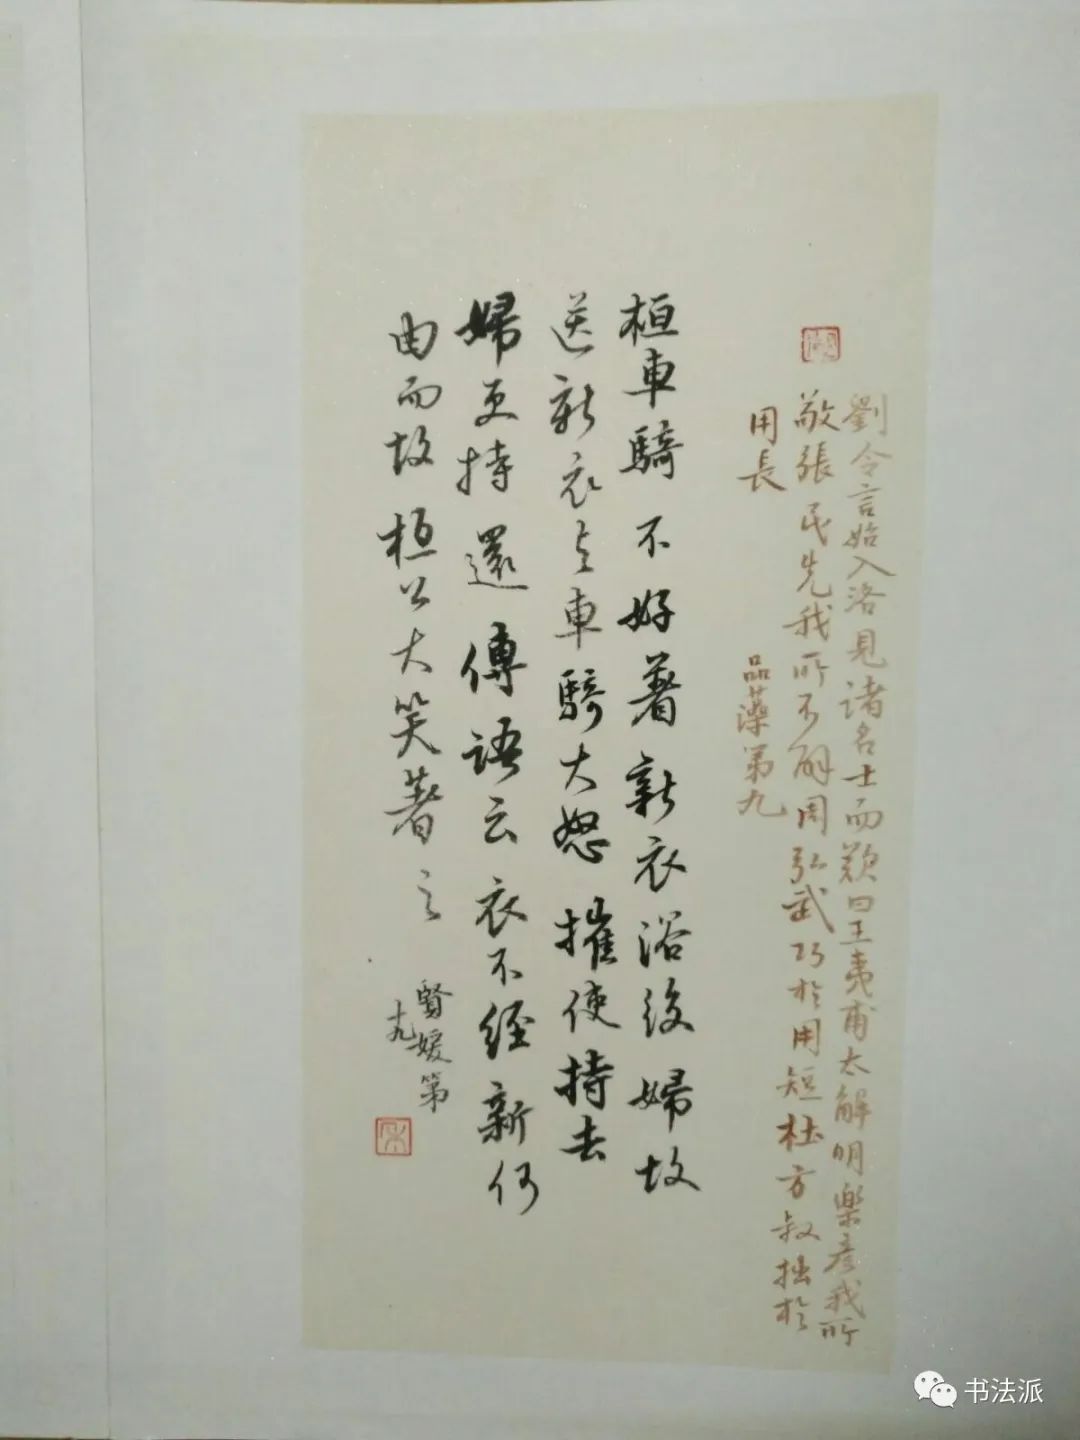 劉令言始入洛見诸名士而歎曰王夷甫太解明樂彦我所
敬張茂先我所不解周弘武巧於用短杜方叔拙於
用長
品藻第九
桓車騎不好著新衣浴後婦故
送新衣与車騎大怒摧使持去
婦更持還傳語云衣不經新何
由而故桓公大笑著之
賢媛第
十九
书法派